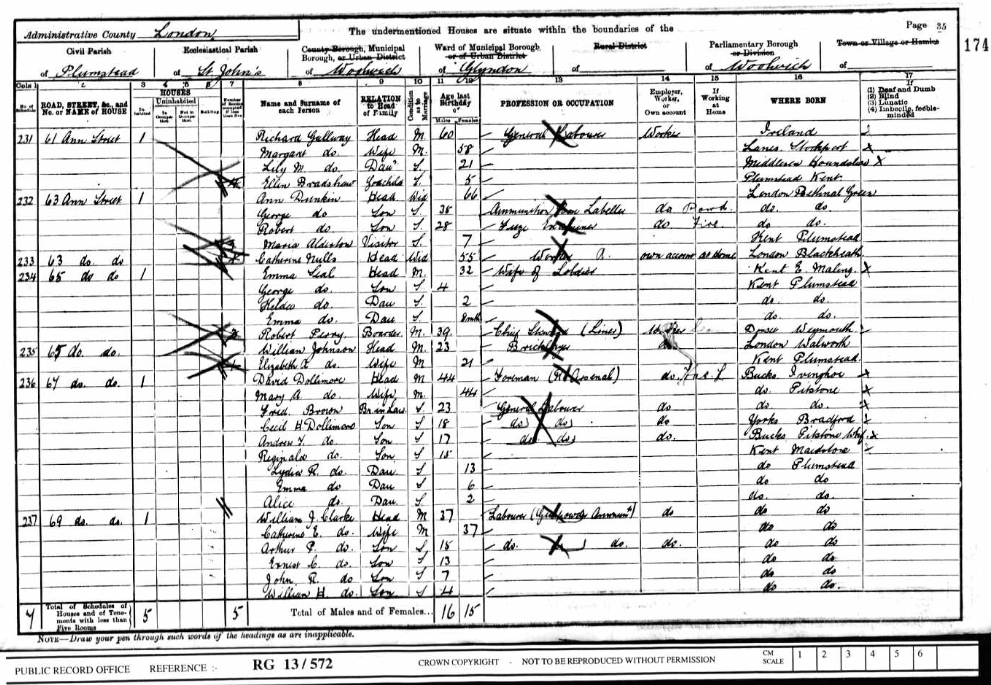 Page 35
174
Administrative County London The undermentioned Houses are situate within the boundaries of the
Civil Parish Ecclesiastical Parish County Borough, Municipal Borough, or Urban District Ward of Municipal Borough or of Urban District Rural District Parliamentary Borough or Division Town or Village or Hamlet
of Plumstead of St. John's of Woolwich of Glyndon of of Woolwich of
Cols 1 2 3 4 5 6 7 8 9 10 11 12 13 14 15 16 17
ROAD, STREET, &c., and No. or NAME of HOUSE HOUSES Inhabited Uninhabited Building Name and Surname of each Person RELATION to Head of Family Condition as to Marriage Age last Birthday of Males Females PROFESSION OR OCCUPATION Employer, Worker, or Own account If Working at Home WHERE BORN If (1) Deaf and Dumb (2) Blind (3) Lunatic (4) Imbecile, feeble-minded
231 61 Ann Street 1 Richard Gallway Head M 60 General Labourer Worker Ireland
Margaret do. Wife M. 58 Lancs. Stockport
Lily M. do. Daur S. 21 Middlesex Hounslow
Ellen Bradshaw S. 5 Plumstead Kent
232 63 Ann Street 1 Ann Dunkin Head Wid 66 London Bethnal Green
George do Son S. 38 Ammunition Labeller do do. do.
Robert do. Son S. 28 do do. do.
Maria Visitor S. 7 Kent Plumstead
233 63 do. do Catherine Head Wid 55 own account at Home London Blackheath
234 65 do do 1 Emma Head M. 32 Wife of Soldier Kent E. Maling
George do. Son S. 4 Kent Plumstead
do. Dau S. 2 do. do.
Emma do. Dau S. 8mths do. do.
Robert Boarder M. 39 Dorset Weymouth
235 65 do. do. William Johnson Head M. 23 London Walworth
Elizabeth do. Wife M 21 Kent Plumstead
236 67 do. do. 1 David Dollimore Head M 44 Foreman (R. Arsenal) do. Bucks Ivinghoe
Mary A. do. Wife M. 44 do. Pitstone
Fred. Brown S 23 General Labourer do do. do.
Cecil H Dollimore Son S 18 do do do Yorks Bradford
Andrew do. Son S 17 do do do. Bucks Pitstone
Reginald do. Son S 15 Kent Maidstone
Lydia R. do. Dau S 13 do Plumstead
Emma do Dau S 6 do do
Alice do. Dau S. 2 do. do.
237 69 do. do. 1 William J. Clarke Head M 37 Labourer do do do
Catherine E. do. Wife M 37 do do
Arthur do. Son S 15 do. do. do. do do
Ernest C. do. Son S 13 do do
John R. do Son S 7 do do
William H. do. Son S 4 do do
Total of Schedules of Houses and of Tenements with less than Five Rooms 5 5 Total of Males and of Females... 16 15
NOTE—Draw your pen through such words of the headings as are inapplicable.
PUBLIC RECORD OFFICE REFERENCE :- RG 13/572 CROWN COPYRIGHT - NOT TO BE REPRODUCED WITHOUT PERMISSION CM SCALE 1 2 3 4 5 6